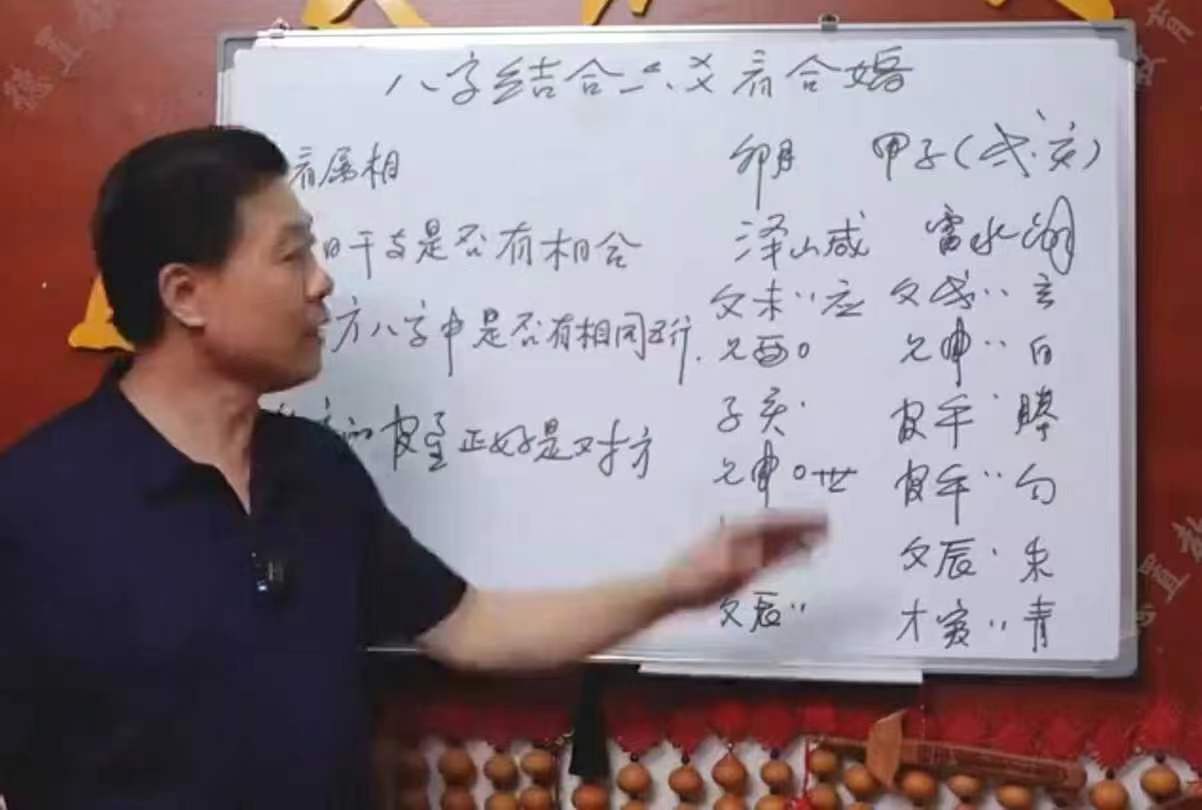 八字结合六爻看合婚
看属相
日干支是否有相合
方八字中是否有相同五行.
官星正好是对方
卯月 甲子(戌、亥)
泽山咸 雷水解
父未〃应 父戌〃玄
兄酉O 兄申〃白
子亥、 官午、腾
兄申O世 官午〃勾
父辰、朱
父辰〃 才寅〃青